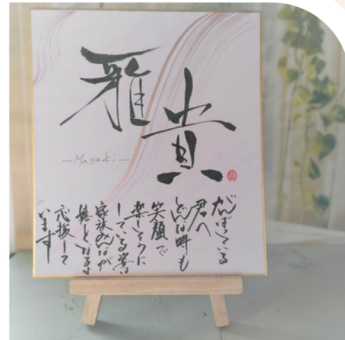 雅貴
Masaki
がんばっている
君へ
どんな時も
笑顔で
楽しそうに
している姿は
家族みんなが
応援して
います